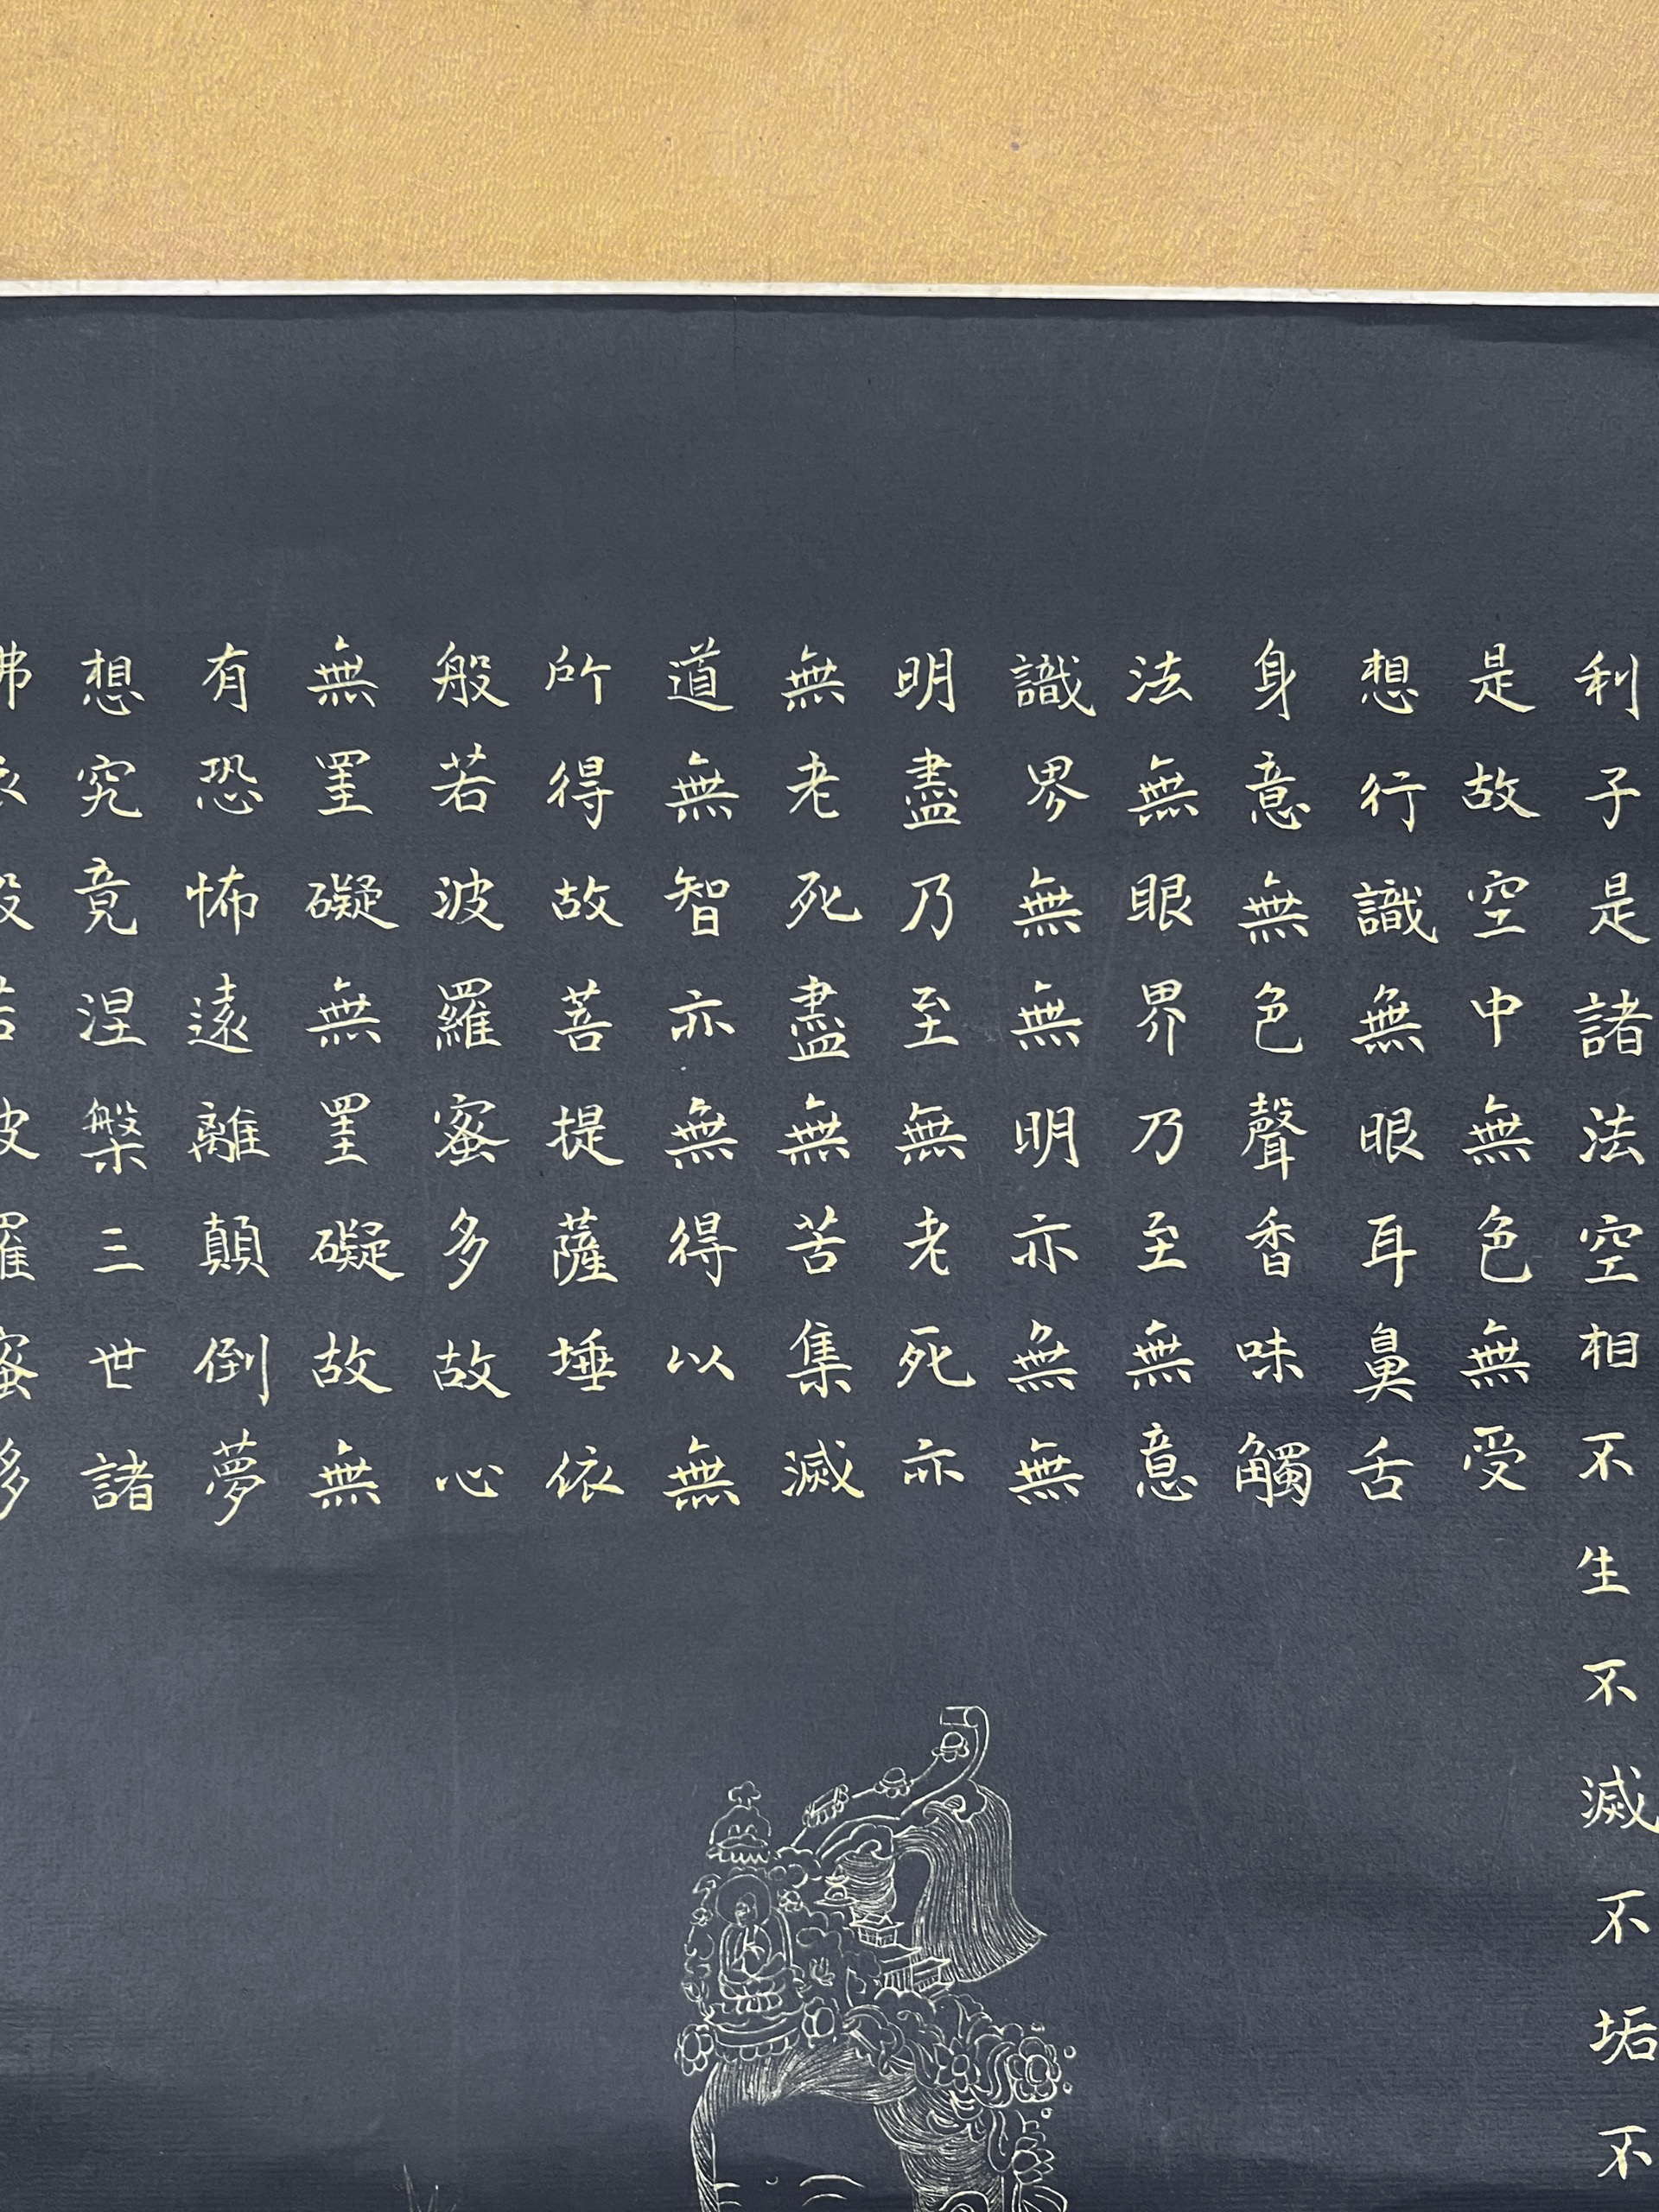 利子是諸法空相不生不滅不垢不
是故空中無色無受
想行識無眼耳鼻舌
身意無色聲香味觸
法無眼界乃至無意
識界無無明亦無無
明盡乃至無老死亦
無老死盡無苦集滅
道無智亦無得以無
所得故菩提薩埵依
般若波羅蜜多故心
無罣礙無罣礙故無
有恐怖遠離顛倒夢
想究竟涅槃三世諸